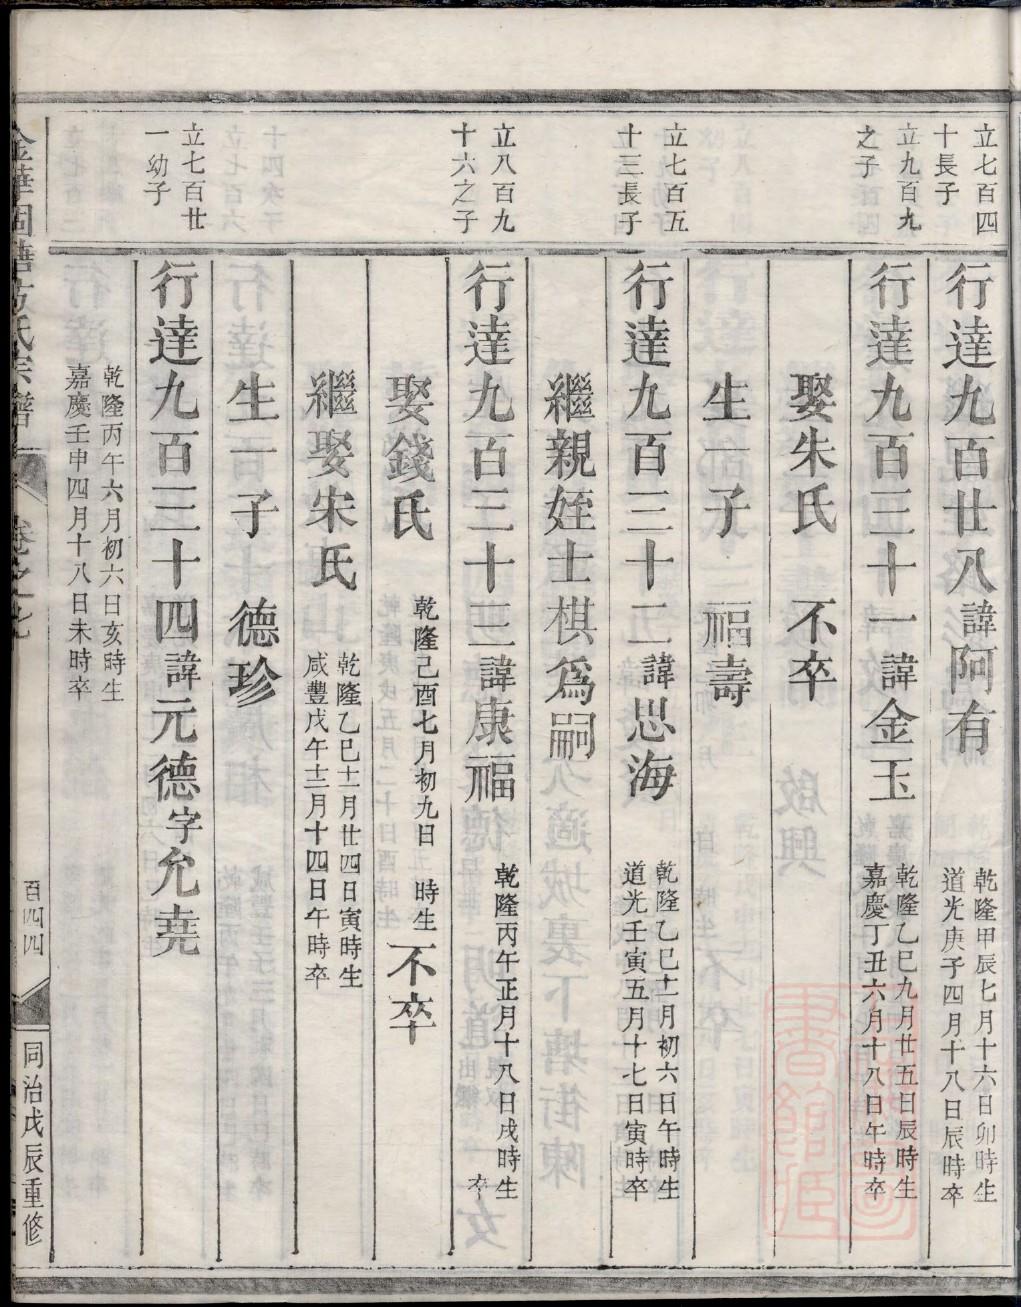 立七百四
十長子
行達九百廿八諱阿有
乾隆甲辰七月十六日卯時生
道光庚子四月十八日辰時卒
立九百九
之子
行達九百三十一諱金玉
乾隆乙巳九月廿五日辰時生
嘉慶丁丑六月十八日午時卒
娶朱氏 不卒
生一子 福壽
立七百五
十三長子
行達九百三十二諱思海
乾隆乙巳十一月初六日午時生
道光壬寅五月十七日寅時卒
繼親姪士棋爲嗣
立八百九
十六之子
行達九百三十三諱康福
乾隆丙午正月十八日戌時生
卒
娶錢氏
乾隆己酉七月初九日 時生
不卒
繼娶宋氏
乾隆乙巳十一月廿四日寅時生
咸豐戊午十二月十四日午時卒
生一子 德珍
立七百廿
一幼子
行達九百三十四諱元德字允堯
乾隆丙午六月初六日亥時生
嘉慶壬申四月十八日未時卒
百四四
同治戊辰重修